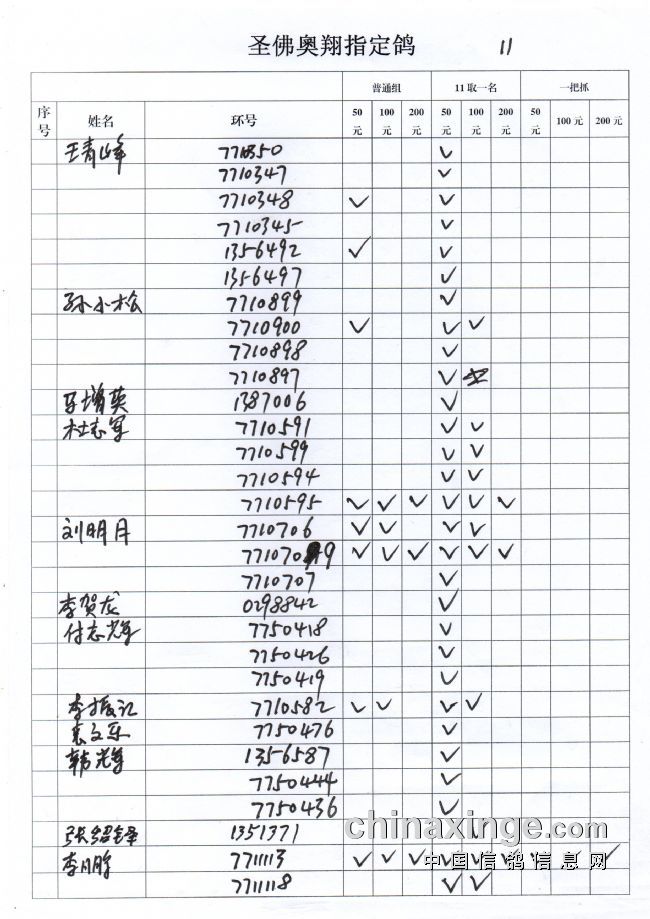 圣佛奥翔指定鸽 11
普通组 11取一名 一把抓
序号 姓名 环号 50元 100元 200元 50元 100元 200元 50元 100元 200元
王青峰 7710350 ✓
7710347 ✓
7710348 ✓ ✓
7710345 ✓
1356492 ✓ ✓
1356497 ✓
孙小松 7710899 ✓
7710900 ✓ ✓ ✓
7710898 ✓
7710897 ✓
马增英 1387006 ✓
杜志军 7710591 ✓ ✓
7710599 ✓ ✓
7710594 ✓ ✓
7710595 ✓ ✓ ✓ ✓ ✓ ✓
刘明月 7710706 ✓ ✓ ✓ ✓
771070 9 ✓ ✓ ✓ ✓ ✓ ✓
7710707 ✓
李贺龙 0298842 ✓
付志辉 7750418 ✓
7750426 ✓
7750419 ✓
李振江 7710582 ✓ ✓ ✓ ✓
袁文乐 7750476 ✓
韩光军 1356587 ✓
7750444 ✓
7750436 ✓
张绍锋 1351371
李月胖 7711113 ✓ ✓ ✓ ✓ ✓ ✓ ✓ ✓ ✓
7711118 ✓ ✓
chinaxinge.com
中国信鸽信息网